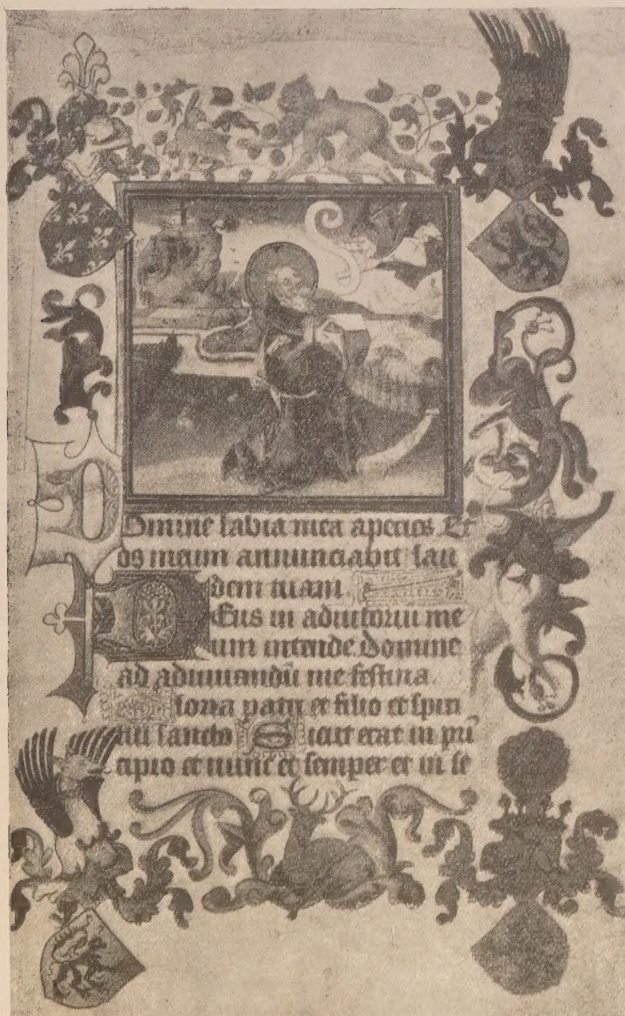 Domine labia mea aperies Et
os meum annunciabit lau
dem tuam
Deus in adiutoriū me
um intende Domine
ad adiuuandū me festina
Gloria patri et filio et spiri
tui sancto Sicut erat in pri
cipio et nunc et semper et in se